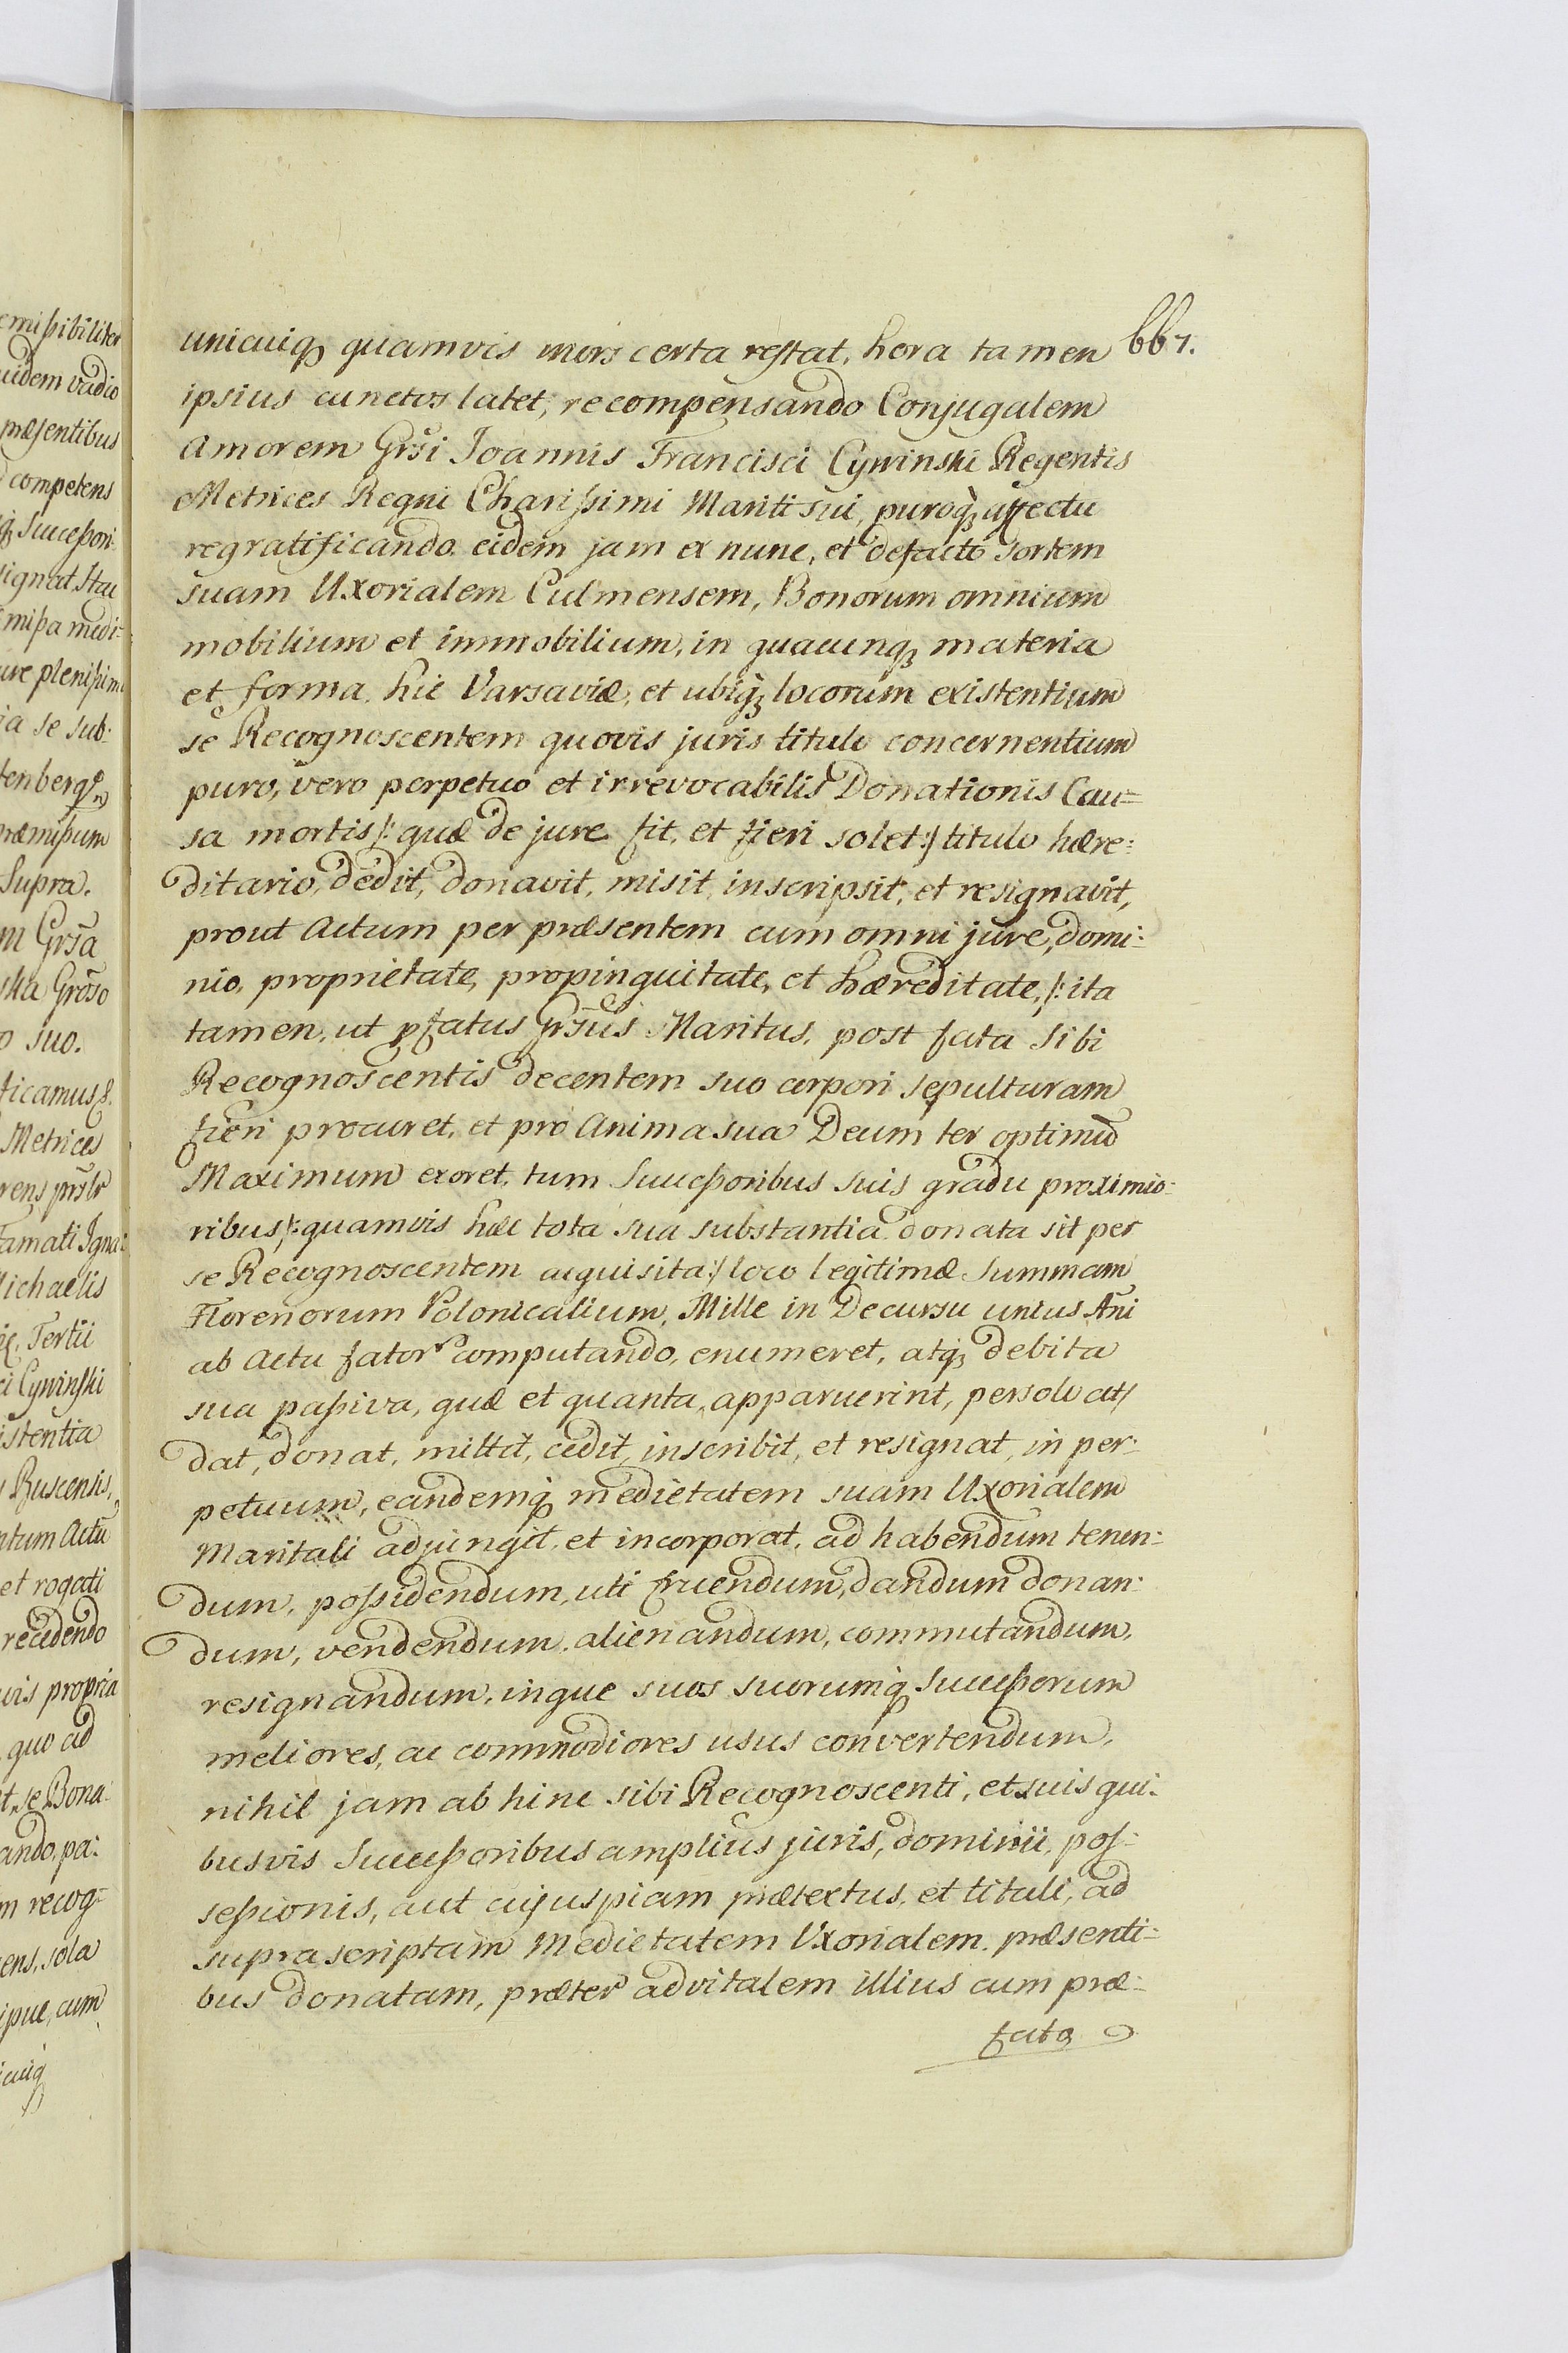 emißibiliter
uidem vadio
præsentibus
competens
Succeßori
signat, Ita
mißa medi-
ure plenißim
ia se sub:
tenberg
ræmißum
Supra.
m Grsa
ska Groso
o suo.
ficamus
Metrices
rens
Famati Igna:
Michaelis
Tertii
ci Cywinski
istentia
Buscensis,
ntum Actu
et rogati
recedendo
uis propria
quo ad
se Bona
ando, pa:
m recog-
ens, sola
ipue, cum
667.
unicuiq quamvis mors certa restat, hora tamen
ipsius cunctos latet, recompensando Conjugalem
Amorem Grsi Joannis Francisci Cywinski Regentis
Metrices Regni Charißimi Mariti sui, puroq affectu
regratificando eidem jam ex nunc, et defacto sortem
suam Uxorialem Culmensem, Bonorum omnium
mobilium et immobilium, in quacunq materia
et forma, hic Varsaviæ, et ubiq locorum existentium
se Recognoscentem quovis juris titulo concernentium
puro, vero perpetuo et irrevocabilis Donationis Cau=
sa mortis /: quæ de jure fit, et fieri solet :/ titulo hære:
ditario, dedit, donavit, misit, inscripsit, et resignavit,
prout Actum per præsentem cum omni jure, domi:
nio, proprietate, propinquitate, et hæreditate, /: ita
tamen, ut pfatus Grsus Maritus, post fata sibi
Recognoscentis decentem suo corpori sepulturam
fieri procuret, et pro Anima sua Deum ter optimū
Maximum exoret, tum Succeßoribus suis gradu proximio:
ribus /: quamvis hæc tota sua substantia donata sit per
se Recognoscentem acquisita :/ loco legitimæ Summam
Florenorum Polonicalium, Mille in Decursu unius Ani
ab Actu fator computando, enumeret, atq debita
sua paßiva, quæ et quanta, apparuerint, persolvat /
dat, donat, mittit, cedit, inscribit, et resignat, in per:
petuum, eandemq medietatem suam Uxorialem
Maritali adjungit, et incorporat, ad habendum tenen:
dum, poßidendum, uti fruendum, dandum donan:
dum, vendendum, alienandum, commutandum,
resignandum, inque suos suorumq Succeßorum
meliores, ac commodiores usus convertendum,
nihil jam ab hinc sibi Recognoscenti, et suis qui:
busvis Succeßoribus amplius juris, dominii, pos:
seßionis, aut cujuspiam prætextus, et tituli, ad
suprascriptam Medietatem Uxorialem, præsenti=
bus donatam, præter advitalem illius cum præ:
fato